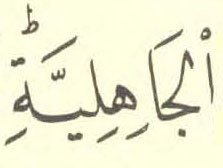 الْجَاهِلِيَّةِؕ